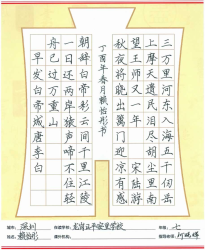 三万里河东入海五千仞岳
上摩天遗民泪尽胡尘里南
望王师又一年
秋夜将晓出篱门迎凉有感
丁酉年春月赖怡彤书
朝辞白帝彩云间千里江陵
一日还两岸猿声啼不住轻
舟已过万重山
早发白帝城唐李白
深圳 龙岗区平安里学校 年级：七
姓名：赖怡彤